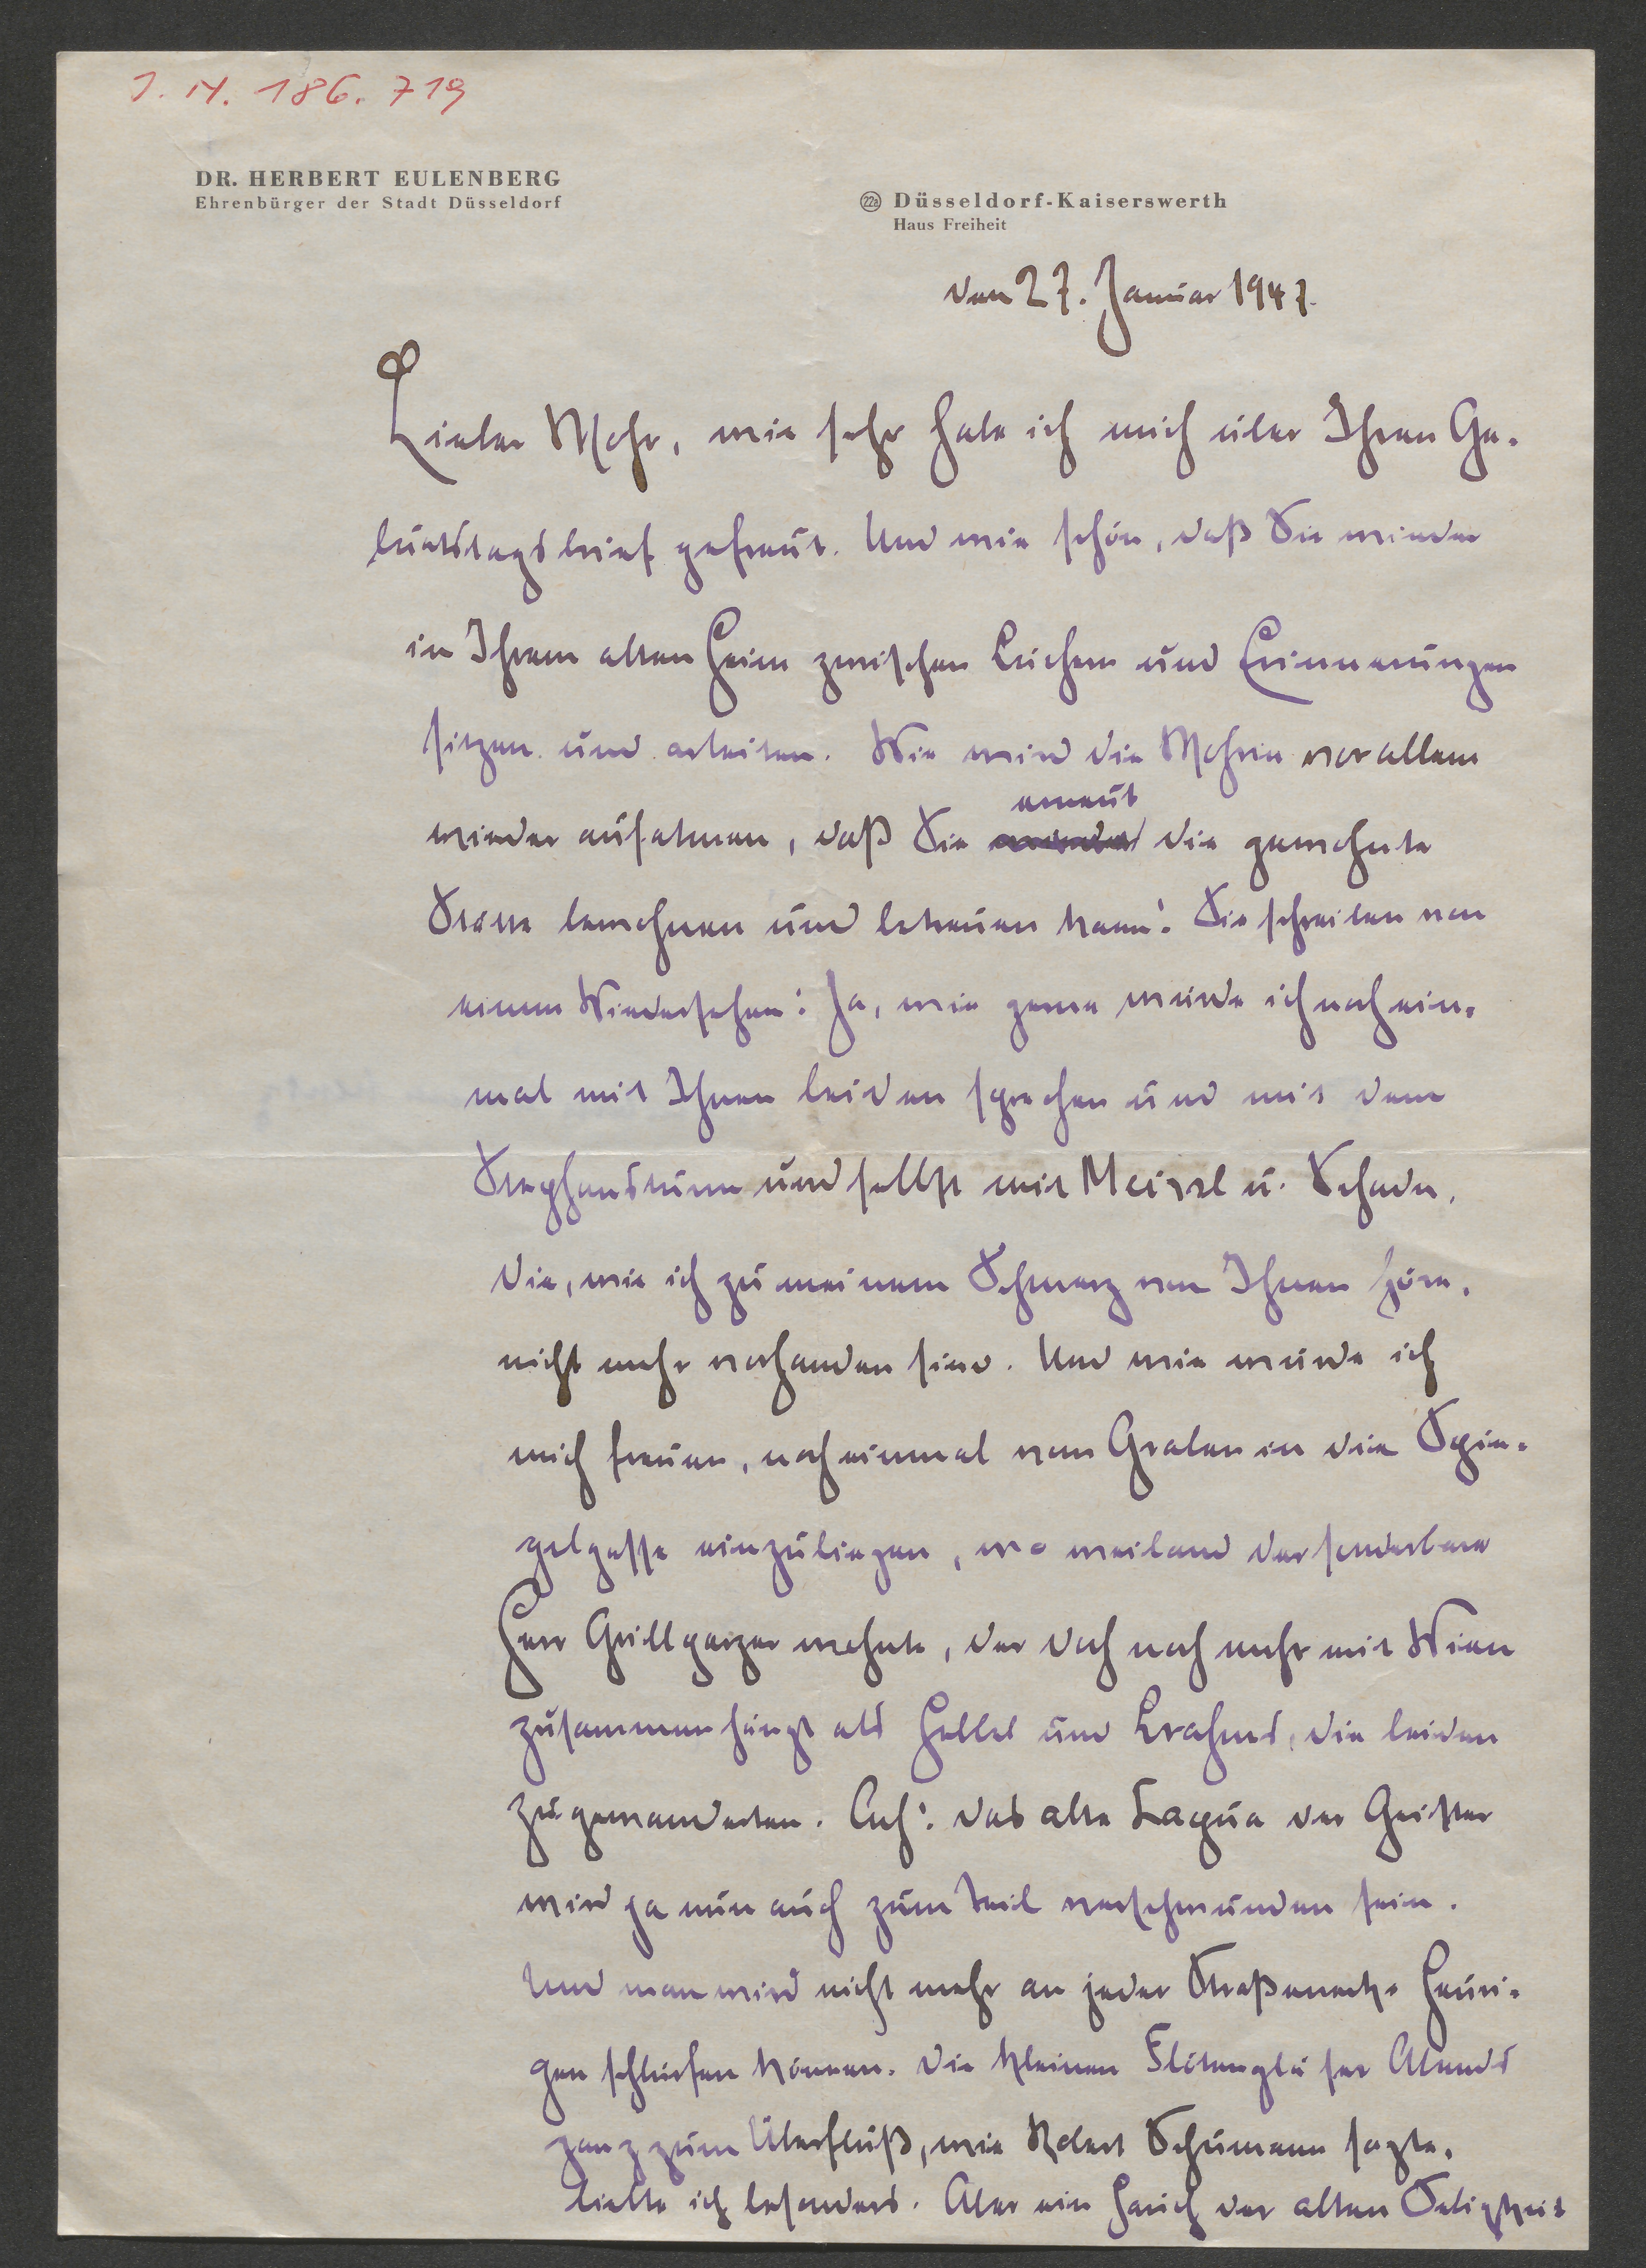 J. N. 186.719
DR. HERBERT EULENBERG
Ehrenbürger der Stadt Düsseldorf
22a Düsseldorf-Kaiserswerth
Haus Freiheit
den 27. Januar 1947.
Lieber Mohr, wie sehr habe ich mich über Ihren Ge-
burtstagsbrief gefreut. Und wie schön, daß Sie wieder
in Ihrem alten Heim zwischen Büchern und Erinnerungen
sitzen und arbeiten. Wie wird die Mohrin vor allem
erneut
wieder aufatmen, daß Sie wieder die gewohnte
Stätte bewohnen und betreuen kann! Sie schreiben von
einem Wiedersehen: Ja, wie gerne würde ich noch ein-
mal mit Ihnen beiden sprechen und mit dem
Stephansturm und selbst mit Meissl u. Schadn,
die, wie ich zu meinem Schmerz von Ihnen höre,
nicht mehr vorhanden sind. Und wie würde ich
mich freuen, noch einmal vom Graben in die Spie-
gelgasse einzubiegen, wo weiland der sonderbare
Herr Grillparzer wohnte, der doch noch mehr mit Wien
zusammenhängt als Hebbel und Brahms, die beiden
Zugewanderten. Ach! das alte Capua der Geister
wird ja nun auch zum Teil verschwunden sein.
Und man wird nicht mehr an jeder Straßenecke Heuri-
gen schlürfen können. Die kleinen Flötengläser Abends
ganz zum Überfluß, wie Robert Schumann sagte,
liebte ich besonders. Aber ein Hauch der alten Seligkeit